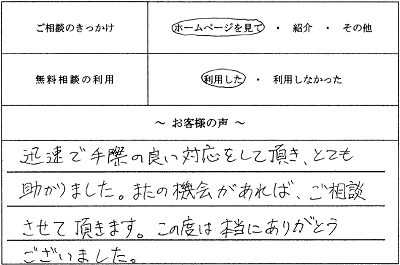 ご相談のきっかけ ホームページを見て ・ 紹介 ・ その他
無料相談の利用 利用した ・ 利用しなかった
～ お客様の声 ～
迅速で手際の良い対応をして頂き、とても
助かりました。またの機会があれば、ご相談
させて頂きます。この度は本当にありがとう
ございました。